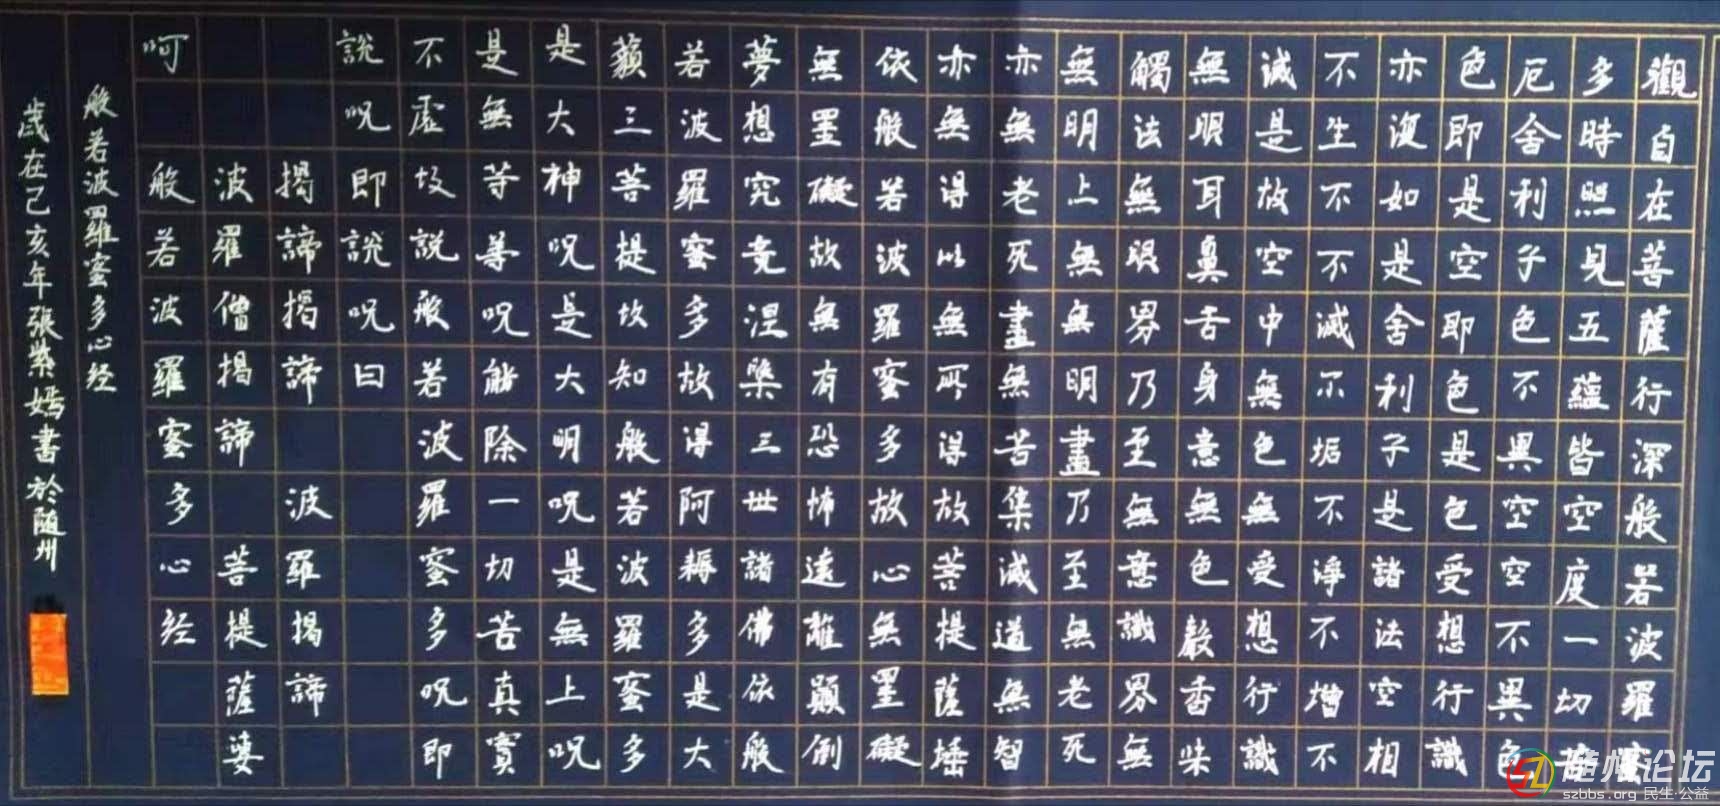 觀自在菩薩行深般若波羅蜜
多時照見五蘊皆空度一切苦
厄舍利子色不異空空不異色
色即是空即色是色受想行識
亦復如是舍利子是諸法空相
不生不不滅不垢不淨不增不
減是故空中無色無受想行識
無眼耳鼻舌身意無色聲香味
觸法無眼界乃至無意識界無
無明上無無明盡乃至無老死
亦無老死盡無苦集滅道無智
亦無得以無所得故菩提薩埵
依般若波羅蜜多故心無罣礙
無罣礙故無有恐怖遠離顛倒
夢想究竟涅槃三世諸佛依般
若波羅蜜多故得阿耨多是大
藐三菩提故知般若波羅蜜多
是大神呪是大明呪是無上呪
是無等等呪能除一切苦真實
不虛故說般若波羅蜜多呪即
說呪即說呪曰
揭諦揭諦 波羅揭諦
波羅僧揭諦 菩提薩婆
呵 般若波羅蜜多心经
般若波羅蜜多心经
歲在己亥年張紫嫣書於随州
随州论坛
szbbs.org 民生·公益